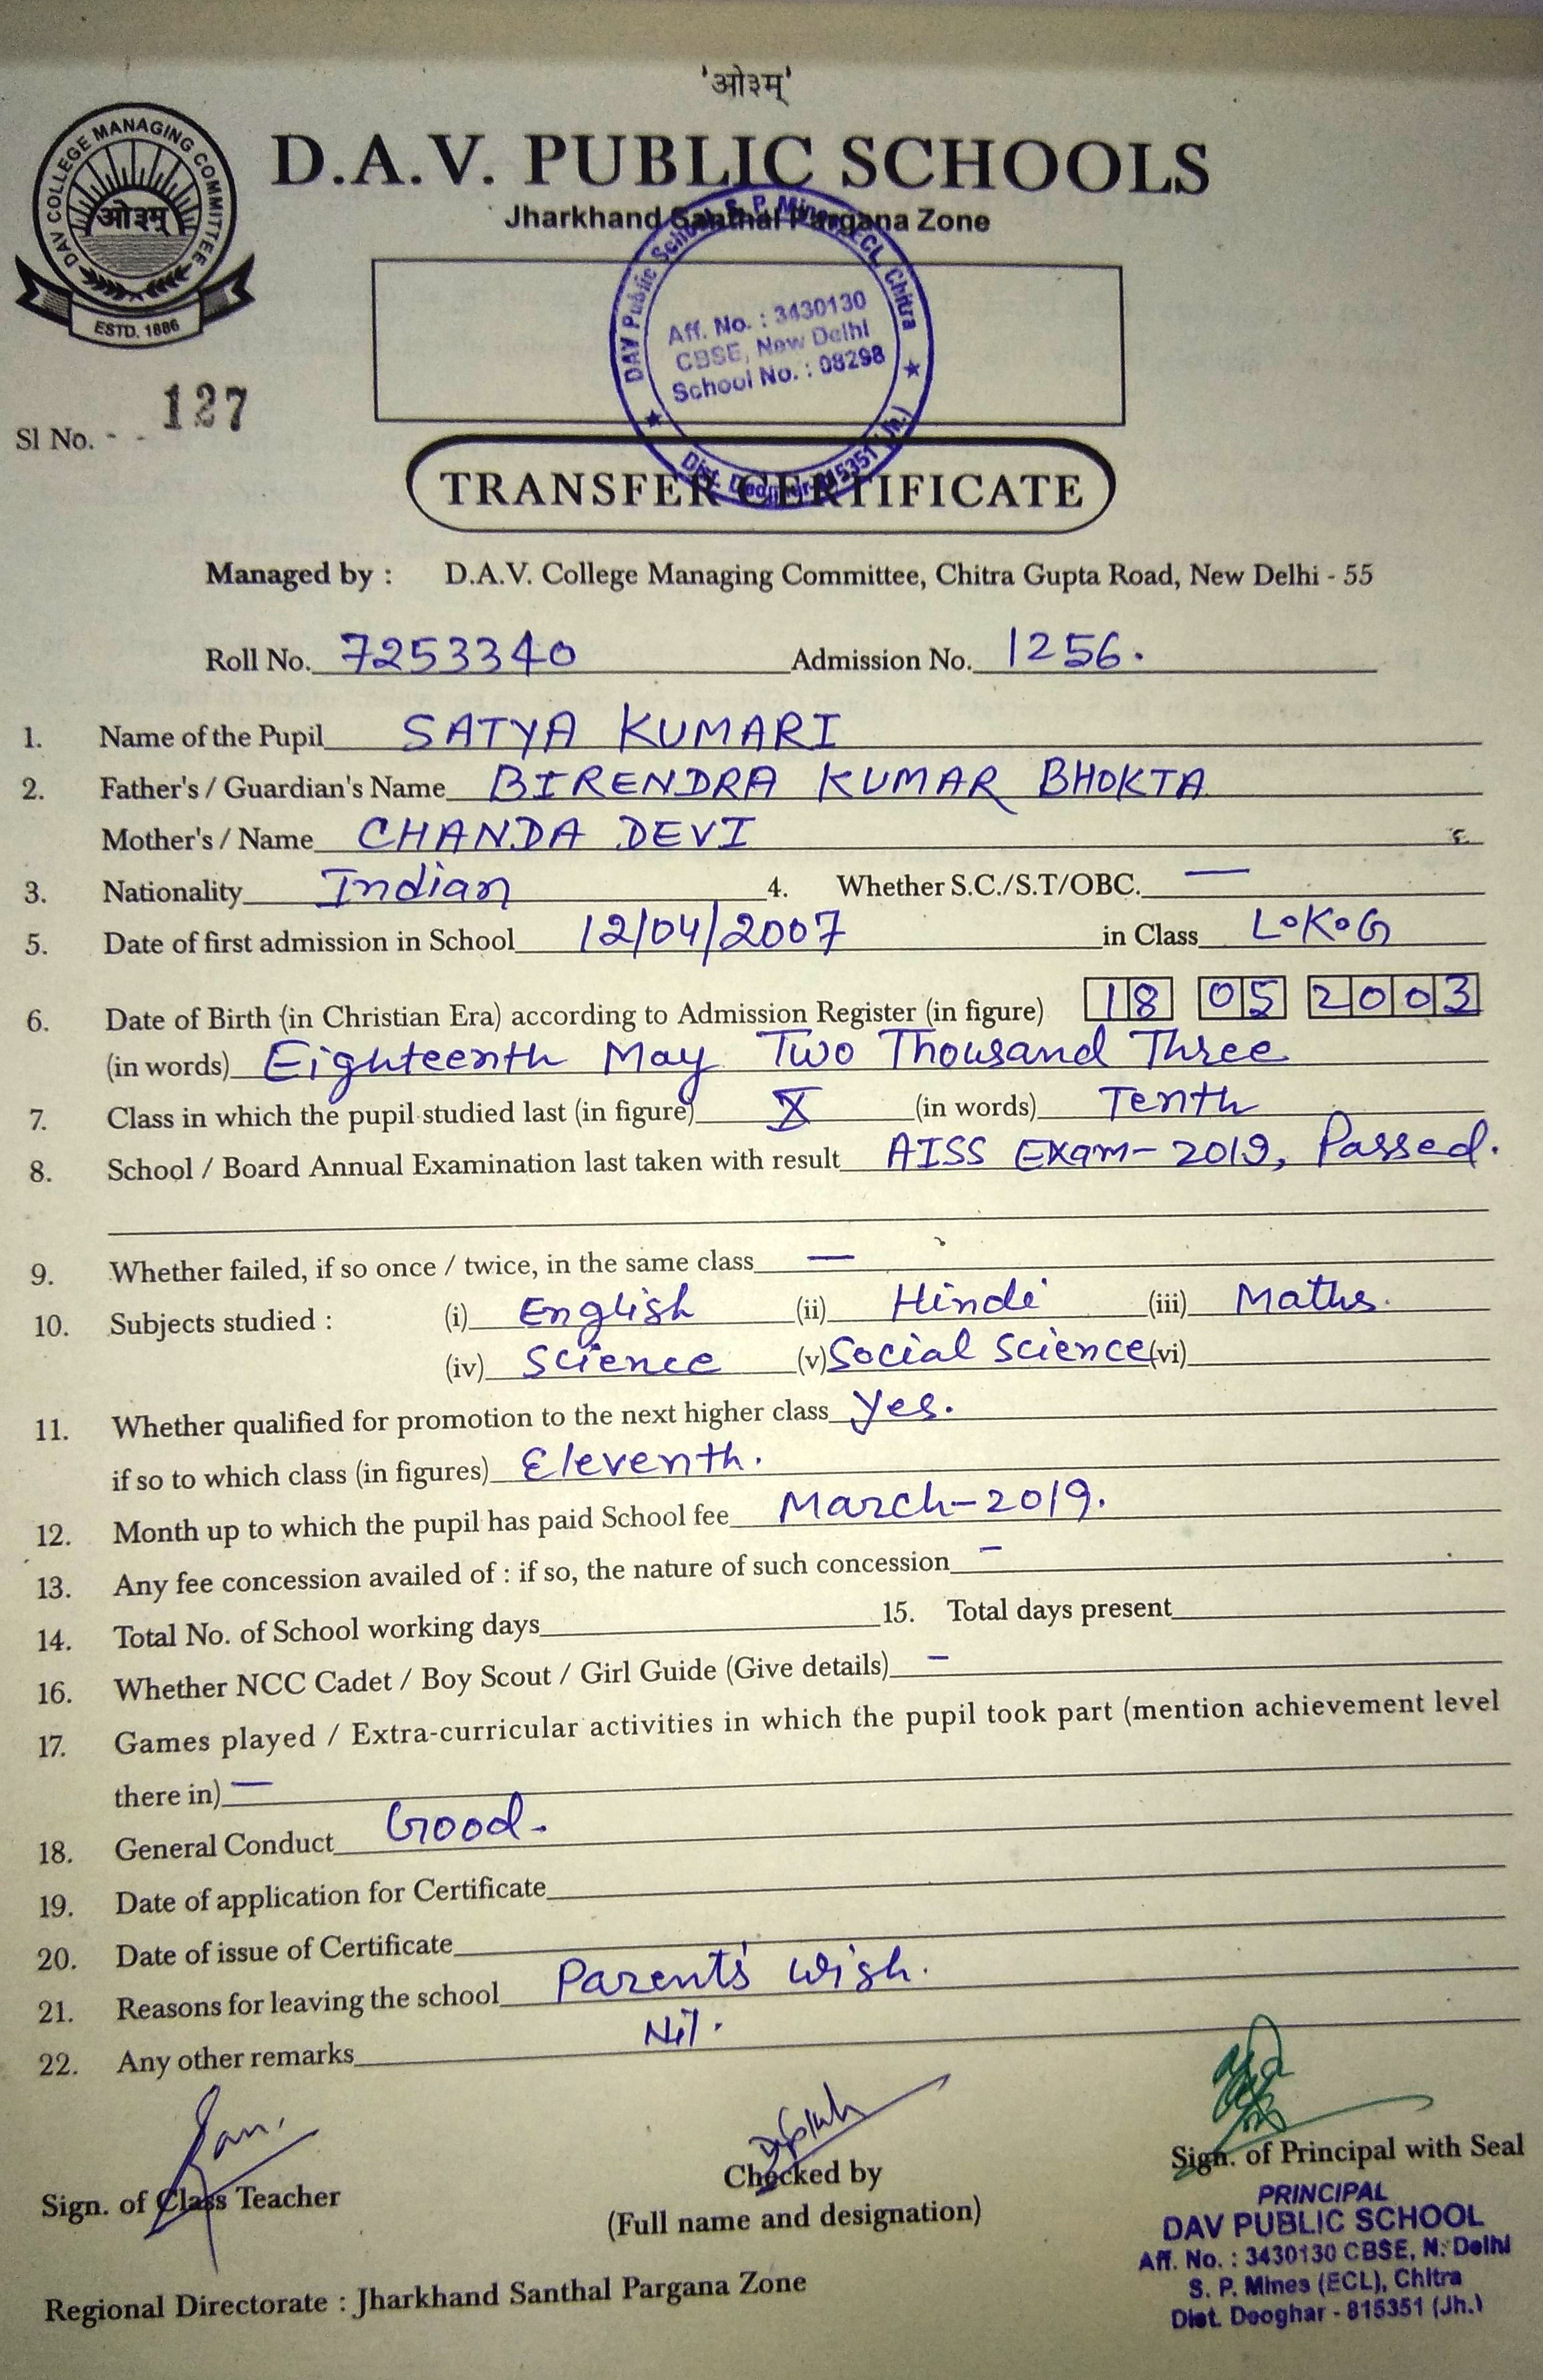 'ओ३म्'
DAV COLLEGE MANAGING COMMITTEE
ओ३म्
ESTD. 1886
D.A.V. PUBLIC SCHOOLS
Jharkhand Santhal Pargana Zone
DAV Public School, S. P. Mines, ECL, Chitra
Aff. No. : 3430130
CBSE, New Delhi
School No. : 08298
Dist. Deoghar-815351 (Jh.)
Sl No. - - 127
TRANSFER CERTIFICATE
Managed by : D.A.V. College Managing Committee, Chitra Gupta Road, New Delhi - 55
Roll No. 7253340 Admission No. 1256.
1. Name of the Pupil SATYA KUMARI
2. Father's / Guardian's Name BIRENDRA KUMAR BHOKTA
Mother's / Name CHANDA DEVI
3. Nationality Indian 4. Whether S.C./S.T/OBC. —
5. Date of first admission in School 12/04/2007 in Class L.K.G
6. Date of Birth (in Christian Era) according to Admission Register (in figure) 18 05 2003
(in words) Eighteenth May Two Thousand Three
7. Class in which the pupil studied last (in figure) X (in words) Tenth
8. School / Board Annual Examination last taken with result AISS Exam- 2019, Passed.
9. Whether failed, if so once / twice, in the same class —
10. Subjects studied : (i) English (ii) Hindi (iii) Maths.
(iv) Science (v) Social Science (vi)
11. Whether qualified for promotion to the next higher class Yes.
if so to which class (in figures) Eleventh.
12. Month up to which the pupil has paid School fee March-2019.
13. Any fee concession availed of : if so, the nature of such concession —
14. Total No. of School working days 15. Total days present
16. Whether NCC Cadet / Boy Scout / Girl Guide (Give details) —
17. Games played / Extra-curricular activities in which the pupil took part (mention achievement level
there in) —
18. General Conduct Good.
19. Date of application for Certificate
20. Date of issue of Certificate
21. Reasons for leaving the school Parent's wish.
22. Any other remarks Nil.
Sign. of Class Teacher
Checked by
(Full name and designation)
Sign. of Principal with Seal
PRINCIPAL
DAV PUBLIC SCHOOL
Aff. No. : 3430130 CBSE, N. Delhi
S. P. Mines (ECL), Chitra
Dist. Deoghar - 815351 (Jh.)
Regional Directorate : Jharkhand Santhal Pargana Zone